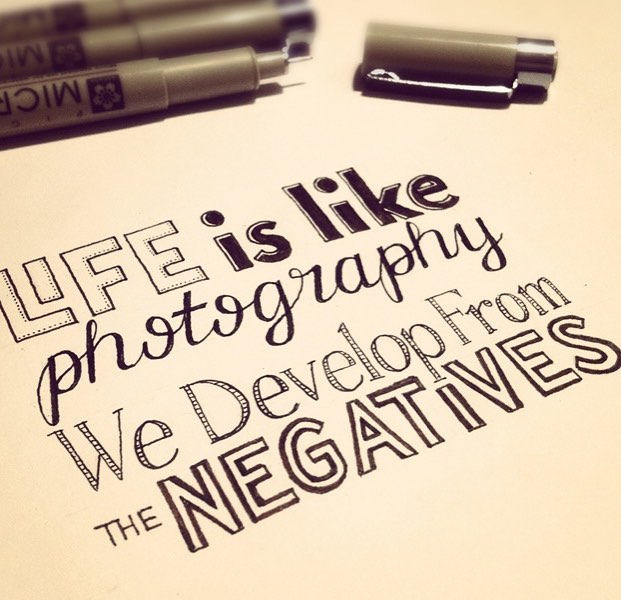 MICR
LiFE is like
photography
We Develop From
THE NEGATiVES